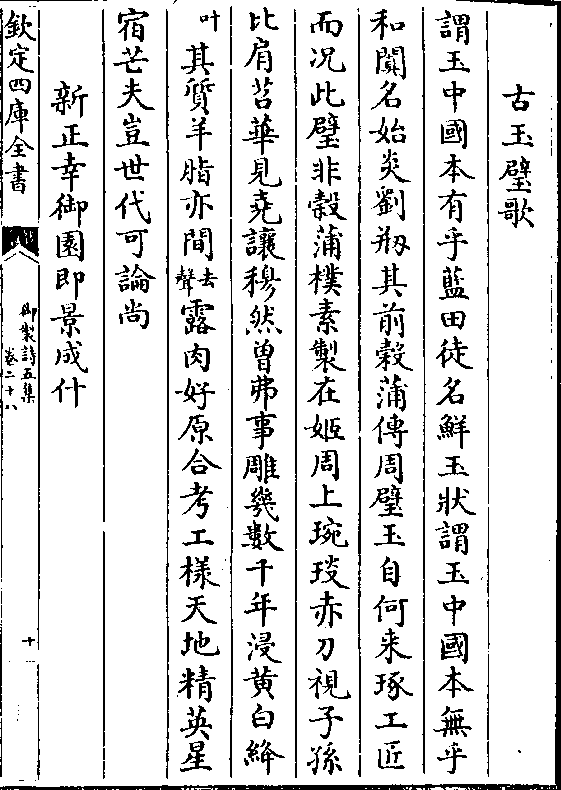 古玉璧歌
謂玉中國本有乎藍田徒名鮮玉狀謂玉中國本無乎
和闐名始炎劉刱其前穀蒲傳周璧玉自何来琢工匠
而况此璧非穀蒲樸素製在姬周上琬琰赤刀視子孫
比肩苕華見堯讓穆然曽弗事雕幾數千年浸黄白絳
叶其質羊脂亦間去聲露肉好原合考工樣天地精英星
宿芒夫豈世代可論尚
新正幸御園即景成什
欽定四庫全書
御製詩五集
卷二十八
十